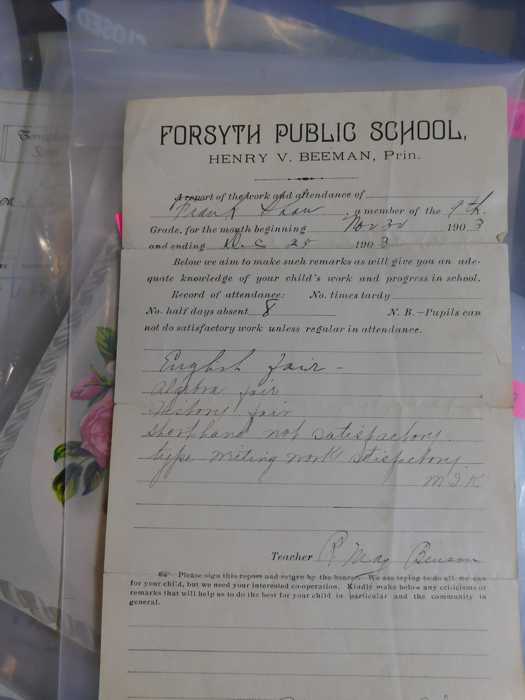 CLOSED
FORSYTH PUBLIC SCHOOL,
HENRY V. BEEMAN, Prin.
A report of the work and attendance of
Frank Shaw, a member of the 9th
Grade, for the month beginning Nov 30 1903
and ending Dec 25 1903
Below we aim to make such remarks as will give you an ade-
quate knowledge of your child's work and progress in school.
Record of attendance: No. times tardy
No. half days absent 8 N. B.—Pupils can
not do satisfactory work unless regular in attendance.
English fair -
Algebra fair
History fair
Shorthand not satisfactory.
type writing work satisfactory.
Teacher R May Benson
Please sign this report and return by the bearer. We are trying to do all we can
for your child, but we need your interested co-operation. Kindly make below any criticisms or
remarks that will help us to do the best for your child in particular and the community in
general.